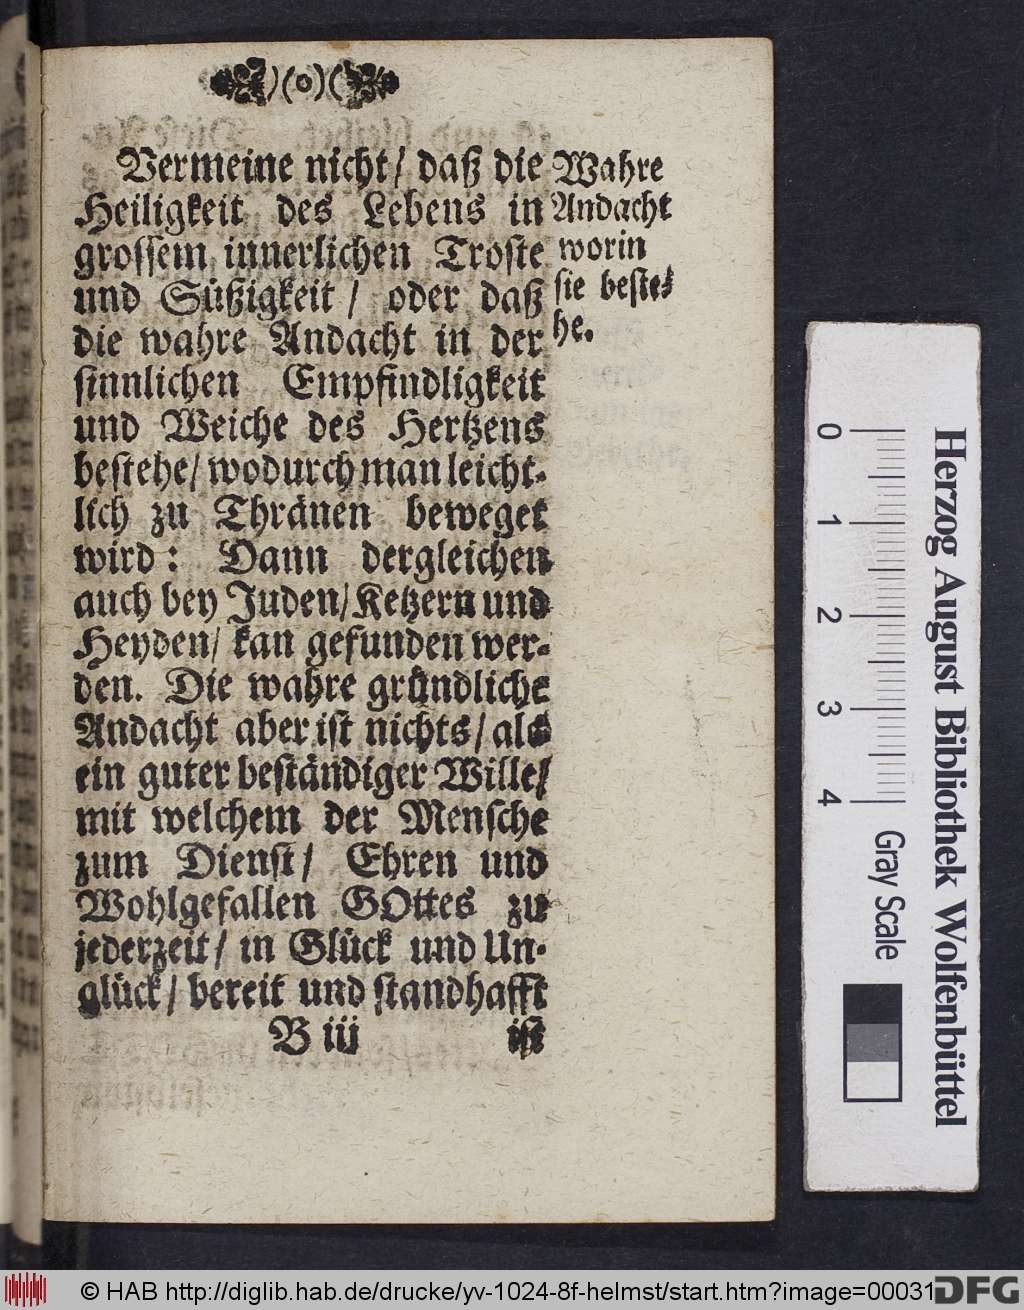 )(o)(
Vermeine nicht/ daß die
Heiligkeit des Lebens in
grossem innerlichen Troste
und Süßigkeit / oder daß
die wahre Andacht in der
sinnlichen Empfindligkeit
und Weiche des Hertzens
bestehe/ wodurch man leicht-
lich zu Thränen beweget
wird: Dann dergleichen
auch bey Juden/ Ketzern und
Heyden/ kan gefunden wer-
den. Die wahre gründliche
Andacht aber ist nichts/ als
ein guter beständiger Wille/
mit welchem der Mensche
zum Dienst/ Ehren und
Wohlgefallen GOttes zu
jederzeit/ in Glück und Un-
glück/ bereit und standhafft
B iij
ist
Wahre
Andacht
worin
sie beste-
he.
Herzog August Bibliothek Wolfenbüttel
0 1 2 3 4
Gray Scale
© HAB http://diglib.hab.de/drucke/yv-1024-8f-helmst/start.htm?image=00031
DFG